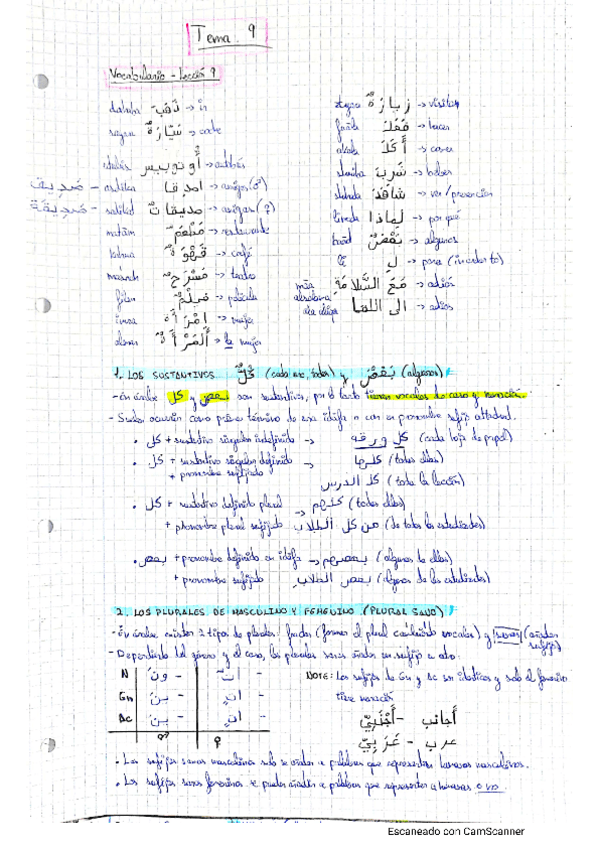 Tema 9
Vocabulario - Lección 9
ذَهَبَ → ir
سَيّارَةٌ → coche
أُوتوبيس → autobús
صَديق - امدقا → amigos (♂)
صَديقَة - مديقاتٌ → amigas (♀)
مَطْعَمٌ → restaurante
قَهْوَةٌ → café
مَسْرَحٌ → teatro
فيلمٌ → película
امْرَأَةٌ → mujer
أَلمَرْأَةٌ → la mujer
زيارَةٌ → visitar
فَعَلَ → hacer
أَكَلَ → comer
شَرِبَ → beber
شاهَدَ → ver/presenciar
لِماذا → por qué
بَعْضٌ → algunos
لِ → para
مَعَ السَّلامَةِ → adiós
الى اللقا → adiós
1. LOS SUSTANTIVOS كُلٌّ (cada uno, todos) y بَعْضٌ (algunos)
- En árabe كل y بعض son sustantivos, por lo tanto tienen vocales de caso y nunación.
- Suelen ocurrir como primer término de una idafa o con un pronombre sufijo attached.
• كل + sustantivo singular indefinido → كل ورقة (cada hoja de papel)
• كل + sustantivo singular definido → كلها (todas ellas)
+ pronombre sufijado كل الدرس (toda la lección)
• كل + sustantivo definido plural → كلهم (todos ellos)
+ pronombre plural sufijado من كل الطلاب (de todos los estudiantes)
• بعض + pronombre definido en idafa → بعضهم (algunos de ellos)
+ pronombre sufijado بعض الطلاب (algunos de los estudiantes)
2. LOS PLURALES DE MASCULINO Y FEMENINO (PLURAL SANO)
- En árabe existen 2 tipos de plurales: fractos (forman el plural cambiando vocales) y sanos (añaden sufijos)
- Dependiendo del género y el caso, los plurales sanos añaden un sufijo u otro.
N - ونَ - اتٌ
Gn - ينَ - اتٍ
Ac - ينَ - اتٍ
♂ ♀
NOTE: Los sufijos de Gn y Ac son idénticos y solo el femenino
tiene nunación
أَجانب - أَجْنَبِيّ
عرب - عَرَبِيّ
• Los sufijos sanos masculinos solo se añaden a palabras que representan humanos masculinos.
• Los sufijos sanos femeninos se pueden añadir a palabras que representen a humanas o no.
Escaneado con CamScanner